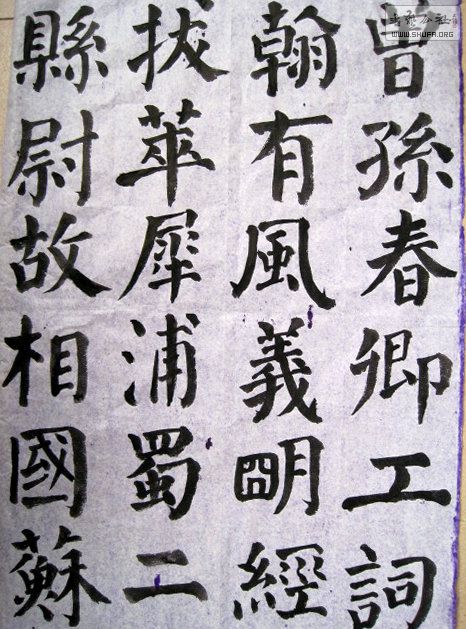 曾孫春卿工詞
翰有風義朙經
拔萃犀浦蜀二
縣尉故相國蘇
WWW.SHUFA.ORG